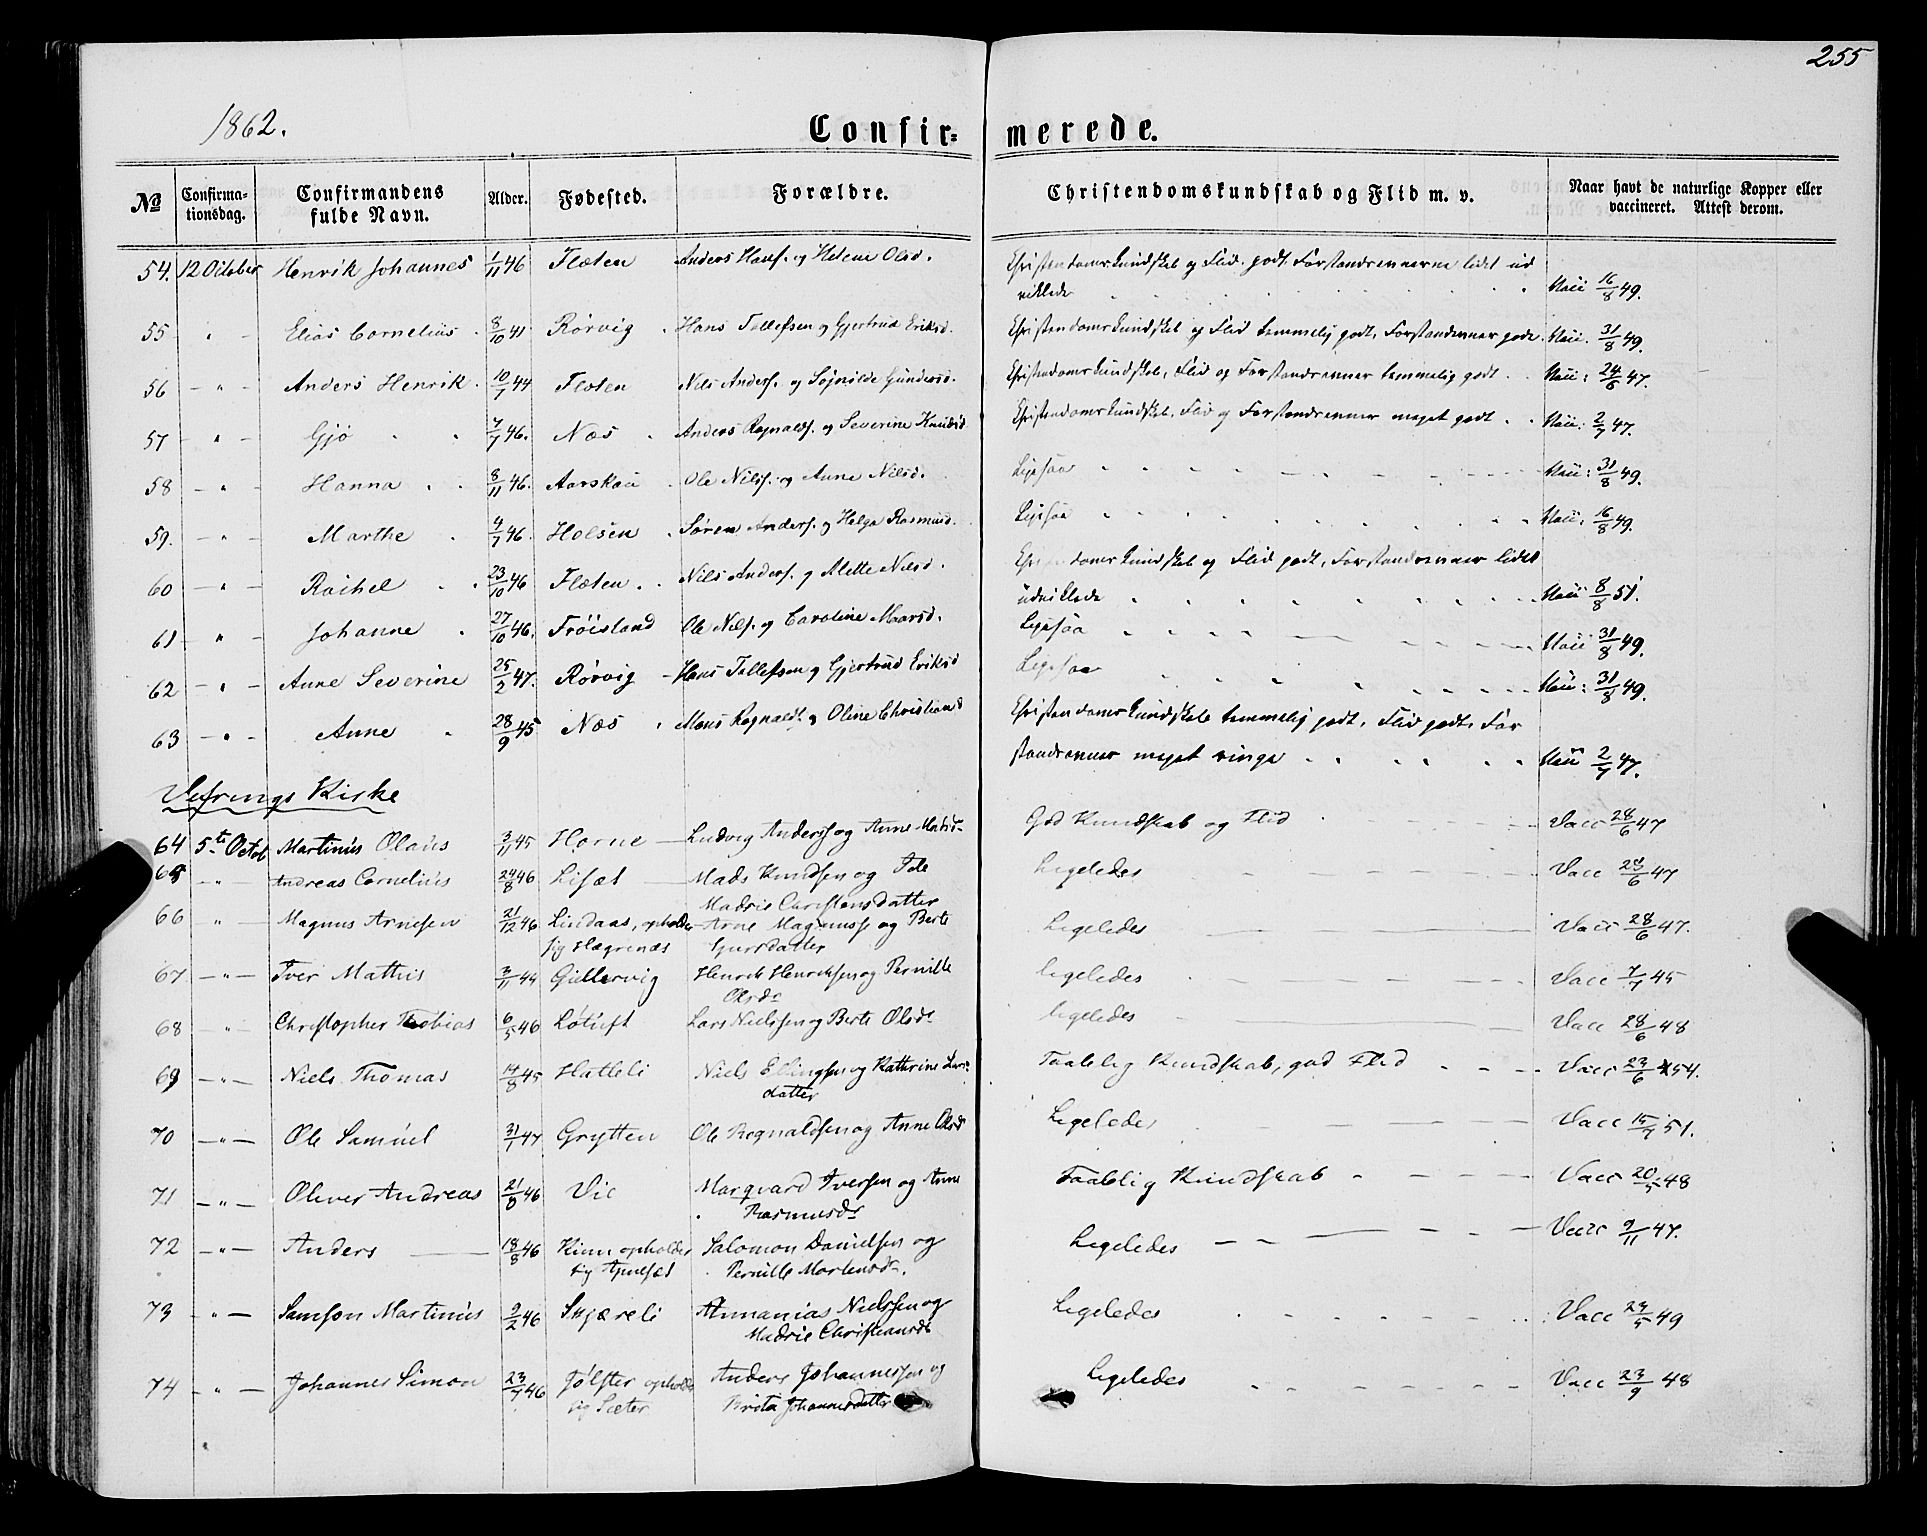 255
1862.
Confirmerede.
№ Confirmationsdag. Confirmandens fulde Navn. Alder. Fødested. Forældre. Christendomskundskab og Flid m. v. Naar havt de naturlige Kopper eller vaccineret. Attest derom.
54. 12 October Henrik Johannes 1/11 46 Flæten Anders Hansʃ. og Helene Olsd. Christendomskundskab og Flid godt. Forstandsevnerne lidet ud
viklede Vacc 16/8 49.
55 " Elias Cornelius 8/10 41 Rørvig Hans Tollefsen og Gjertrud Eriksd. Christendomskundskab og Flid temmelig godt, Forstandsevner gode. Vacc. 31/8 49.
56 - " - Anders Henrik 10/7 44 Flæten Nils Andersʃ. og Gundersd. Christendomskundskab, Flid og Forstandsevner temmelig godt Vacc: 24/6 47.
57 - " - Gjø 7/7 46. Næs Anders Ragnaldsʃ. og Severine Knudsd. Christendomskundskab, Flid og Forstandsevner meget godt Vacc: 2/7 47.
58 - " - Hanna 8/11 46. Aarskau Ole Nilsʃ. og Anne Nilsd. Ligesaa Vacc: 31/8 49.
59. - " - Marthe 4/7 46. Holsen Søren Andersʃ. og Helga Rasmusd. Ligesaa Vacc: 16/8 49.
60 - " - Rachel 23/10 46 Flæten Nils Andersʃ. og Mette Nilsd. Christendomskundskab og Flid godt, Forstandsevner lidet
udviklede Vacc 8/8 51.
61 - " - Johanne 27/10 46. Frøisland Ole Nilsʃ. og Caroline Maarsd. Ligesaa Vacc 31/8 49.
62 - " - Anne Severine 25/2 47. Rørvig Hans Tollefsen og Gjertrud Eriksd Ligesaa Vacc: 31/8 49.
63 - " - Anne 28/9 45 Næs Mons Ragnaldsʃ. og Oline Christiansd Christendomskundskab temmelig godt, Flid godt, For
standsevner meget ringe Vacc 2/7 47.
Vefrings Kirke
64 5te Octob Martinus Olaus 3/11 45 Horne Ludvig Anderss og Anne Madsd. God Kundskab og Flid Vacc 28/6 47
65 - " - Andreas Cornelius 24/8 46 Lisæt Mads Knudsen og Ide Ligeledes Vacc 28/6 47
Madrie Christensdatter
66 " Magnus Arnesen 21/12 46 Lindaas, opholder Arne Magnuss og Berte Ligeledes Vacc 28/6 47.
sig Hægrenæs datter
67 - " - Iver Mathis 3/11 44 Gullervig Henrik Henriksen og Pernille ligeledes Vacc 7/7 45
Olsdr
68 " Christopher Tobias 6/5 46 Løtuft Lars Nielssen og Berte Olsdr ligeledes Vacc 28/6 48
69 - " - Niels Thomas 14/8 45 Hatleli Niels Ellingsen og Kathrine Lars Taalelig Kundskab, god Flid Vacc 23/6 54.
datter
70 - " - Ole Samuel 31/1 47 Grytten Ole Regnaldsen og Anne Olsdr Ligeledes Vacc 15/7 51.
71 - " - Oliver Andreas 21/8 46 Vie Marqvard Iversen og Anne Taalelig Kundskab Vacc 20/5 48
Rasmusdr
72 - " - Anders 18/8 46 Kinn opholder Salomon Danielsen og Ligeledes Vacc 9/11 47.
sig Apnesæt Pernille Mortensdr.
73 - " - Samson Martinus 9/2 46 Skjæreli Annanias Nielssen og Ligeledes Vacc 24/5 49
Madrie Christiansdr
74 - " - Johannes Simon 23/7 46 Jølster opholder Anders Johannessen og Ligeledes Vacc 23/9 48
sig Sæter Brita Johannesdatter